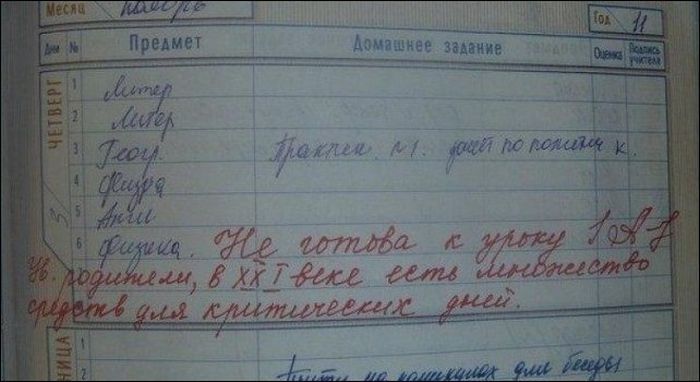 Месяц ноябрь Год 11
Дни № Предмет Домашнее задание Оценка Подпись учителя
ЧЕТВЕРГ 3
1 Литер
2 Литер
3 Геогр. Практич. №1.
4 Физра
5 Англ
6 Физика. Не готова к уроку !
Ув. родители, в XXI веке есть множество
средств для критических дней.
1
2 на каникулах для беседы